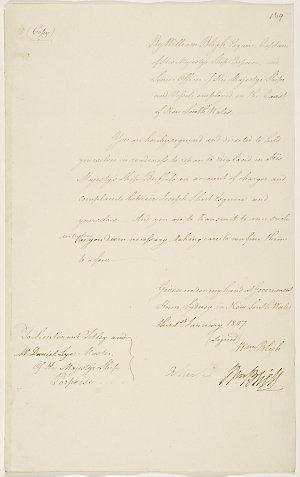 169
(Copy)
By William Bligh Esquire Captain
of His Majestys Ship Porpoise and
Senior Officer of His Majestys Ships
and Vessels employed on the Coast
of New South Wales
You are hereby required and directed to hold
yourselves in readiness to return to England in His
Majestys Ship Buffalo on account of charges and
complaints between Joseph Short Esquire and
yourselves. And you are to transmit to me such
as you deem necessary taking care to confine them
to a few
Given under my hand at Government
House Sydney in New South Wales
this 1st January 1807
Signed
Wm Bligh
To Lieutenant Tetley and
Mr Daniel Lye Master
of His Majestys Ship
Porpoise
Wm Bligh